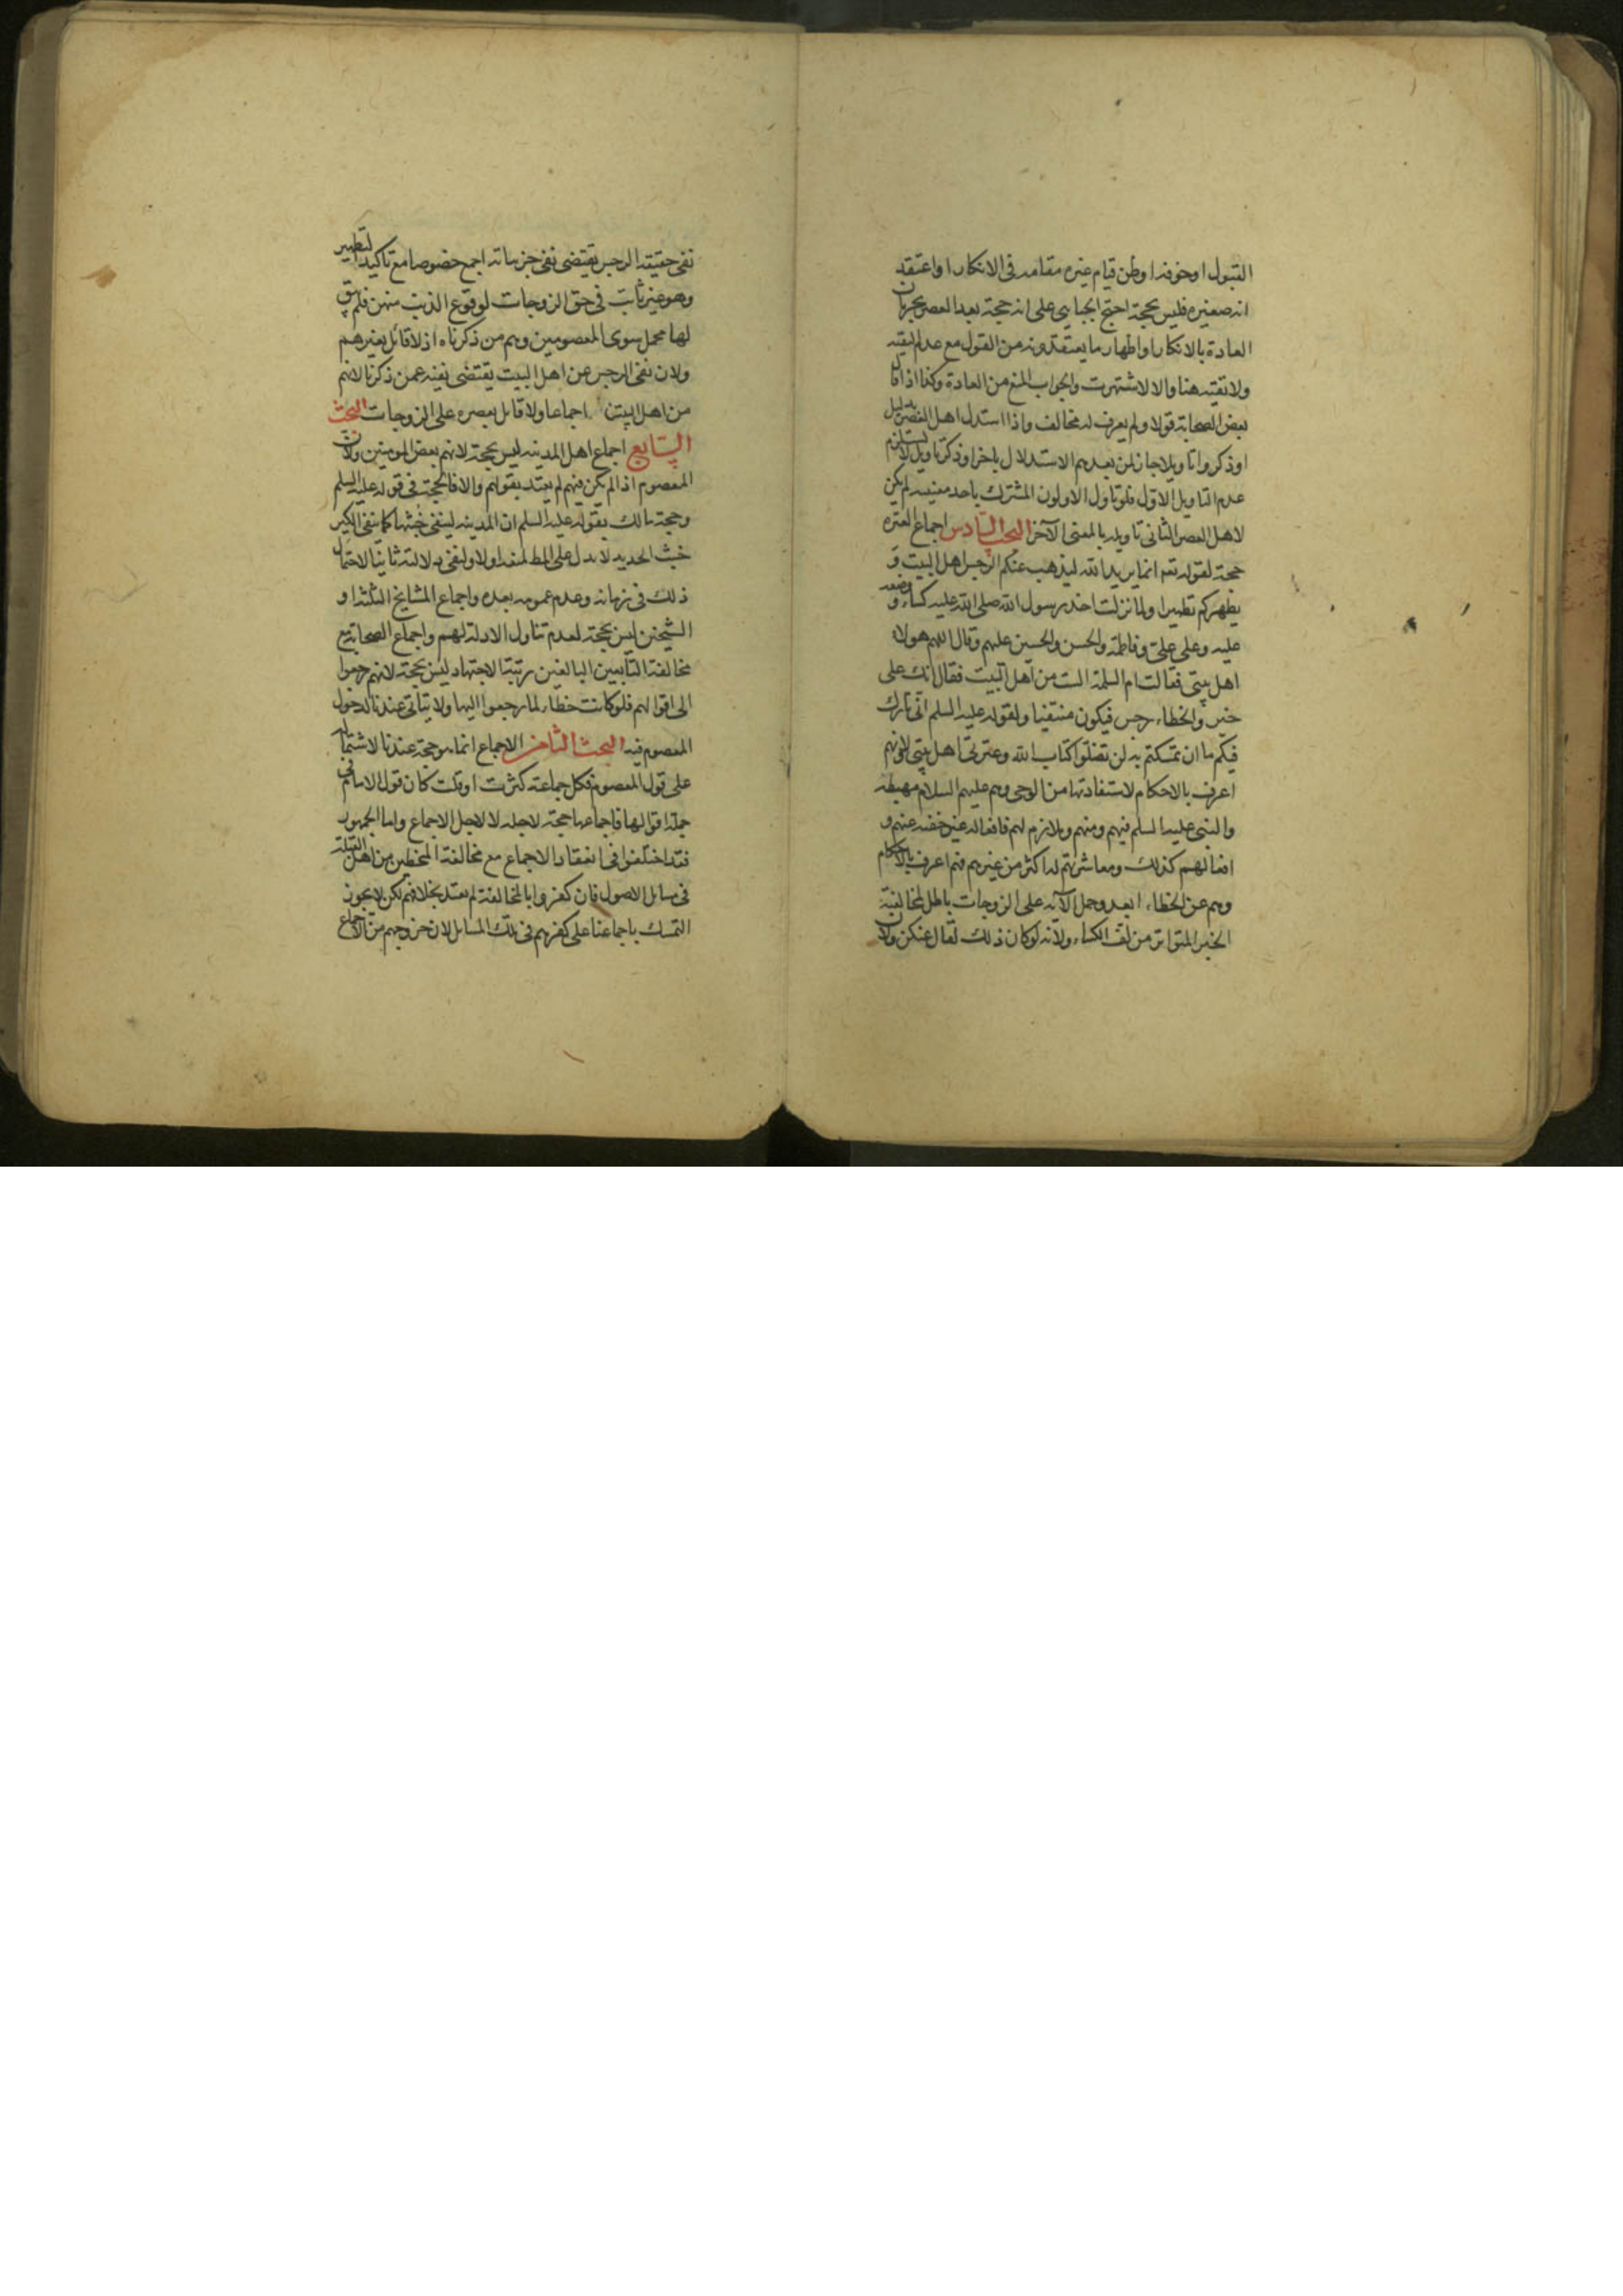 القبول او خوفه او ظن قيام غيره مقامه فى الانكار او اعتقد
انه صغيره فليس بحجة احتج الجبايى على انه حجة بعد العصر بجريان
العادة بالانكار او اظهار ما يعتقدونه من القول مع عدم التقيه
ولا تقيه هنا والا لاشتهرت والجواب المنع من العادة وكذا اذا قال
بعض الصحابة قولا ولم يعرف له مخالف واذا استدل اهل العصر بدليل
او ذكروا تاويلا جاز لمن بعدهم الاستدلال باخر او ذكر تاويل لا يستلزم
عدم التاويل الاول فلو تاول الاولون المشترك باحد معنييه لم يكن
لاهل العصر الثانى تاويله بالمعنى الآخر البحث السادس اجماع العتره
حجة لقوله تعه انما يريد الله ليذهب عنكم الرجس اهل البيت و
يطهركم تطهيرا ولما نزلت اخذ رسول الله صلى الله عليه كساء و وضعه
عليه وعلى على وفاطمة والحسن والحسين عليهم وقال اللهم هولاء
اهل بيتى فقالت ام السلمة الست من اهل البيت فقال انك على
خير والخطاء رجس فيكون منتفيا ولقوله عليه السلم انى تارك
فيكم ما ان تمسكتم به لن تضلوا كتاب الله وعترتى اهل بيتى لانهم
اعرف بالاحكام لاستفادتها من الوحى وهم عليهم السلام مهبطه
والنبى عليه السلم فيهم ومنهم وملازم لهم فافعاله غير خفيه عنهم و
افعالهم كذلك ومعاشرتهم له اكثر من غيرهم فهم اعرف بالاحكام
وهم عن الخطاء ابعد وحمل الآية على الزوجات باطل لمخالفة
الخبر المتواتر من لف الكساء ولانه لو كان ذلك لقال عنكن ولان
نفى حقيقة الرجس يقتضى نفى جزيياته اجمع خصوصا مع تاكيد التطهير
وهو غير ثابت فى حق الزوجات لوقوع الذنب منهن فلم يبق
لها محمل سوى المعصومين وهم من ذكرناه اذ لا قائل بغيرهم
ولان نفى الرجس عن اهل البيت يقتضى نفيه عمن ذكرنا لانهم
من اهل البيت اجماعا ولا قايل بقصره على الزوجات البحث
السابع اجماع اهل المدينه ليس بحجة لانهم بعض المومنين ولان
المعصوم اذا لم يكن فيهم لم يعتد بقولهم والا فالحجة فى قوله عليه السلم
وحجة مالك بقوله عليه السلم ان المدينه لينفى خبثها كما ينفى الكير
خبث الحديد لا يدل على المط لمنع اولا ولنفى دلالته ثانيا لاحتمال
ذلك فى زمانه وعدم عمومه بعده واجماع المشايخ الثلثه او
الشيخين ليس بحجة لعدم تناول الادلة لهم واجماع الصحابة مع
مخالفة التابعين البالغين رتبة الاجتهاد ليس بحجة لانهم رجعوا
الى اقوالهم فلو كانت خطاء لما رجعوا اليها ولا يتاتى عندنا لدخول
المعصوم فيه البحث الثامن الاجماع انما هو حجة عندنا لاشتماله
على قول المعصوم فكل جماعة كثرت او قلت كان قول الامام فى
جملة اقوالها فاجماعها حجة لاجله لا لاجل الاجماع واما الجمهور
فقد اختلفوا فى انعقاد الاجماع مع مخالفة المخطين من اهل القبلة
فى مسايل الاصول فان كفروا بالمخالفة لم يعتد بخلافهم لكن لا يجوز
التمسك باجماعنا على كفرهم فى تلك المسايل لان خروجهم من الاجماع